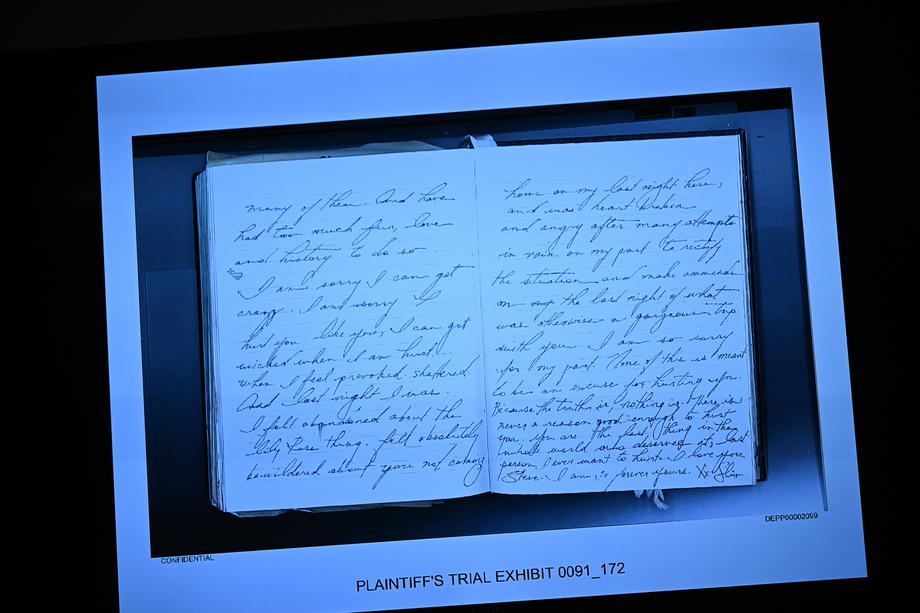 many of them. And have
had too much fun, love
and history to do so...
I am sorry I can get
crazy. I am sorry I
hurt you. like you, I can get
wicked when I am hurt...
when I feel provoked. shattered.
And last night I was.
I felt abandoned about the
Lily Rose thing. felt absolutely
bewildered about you not coming
home on my last night here,
and was heart broken
and angry after many attempts
in vain on my part to rectify
the situation and make ammends
on the last night of what
was otherwise a gorgeous trip
with you. I am so sorry
for my part. None of this is meant
to be an excuse for hurting you.
Because the truth is, nothing is. There is
never a reason good enough to hurt
you. you are the last thing in the
whole world who deserves it, last
person I ever want to hurt. I love you
Steve. I am so forever yours. Xx Slim
CONFIDENTIAL
DEPP00002099
PLAINTIFF'S TRIAL EXHIBIT 0091_172